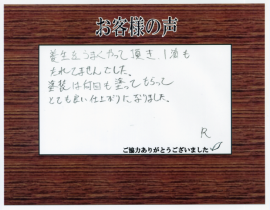 お客様の声
養生もうまくやって頂き、1滴も
たれてませんでした。
塗装は何回も塗ってもらって
とても良い仕上がりになりました。
R
ご協力ありがとうございました